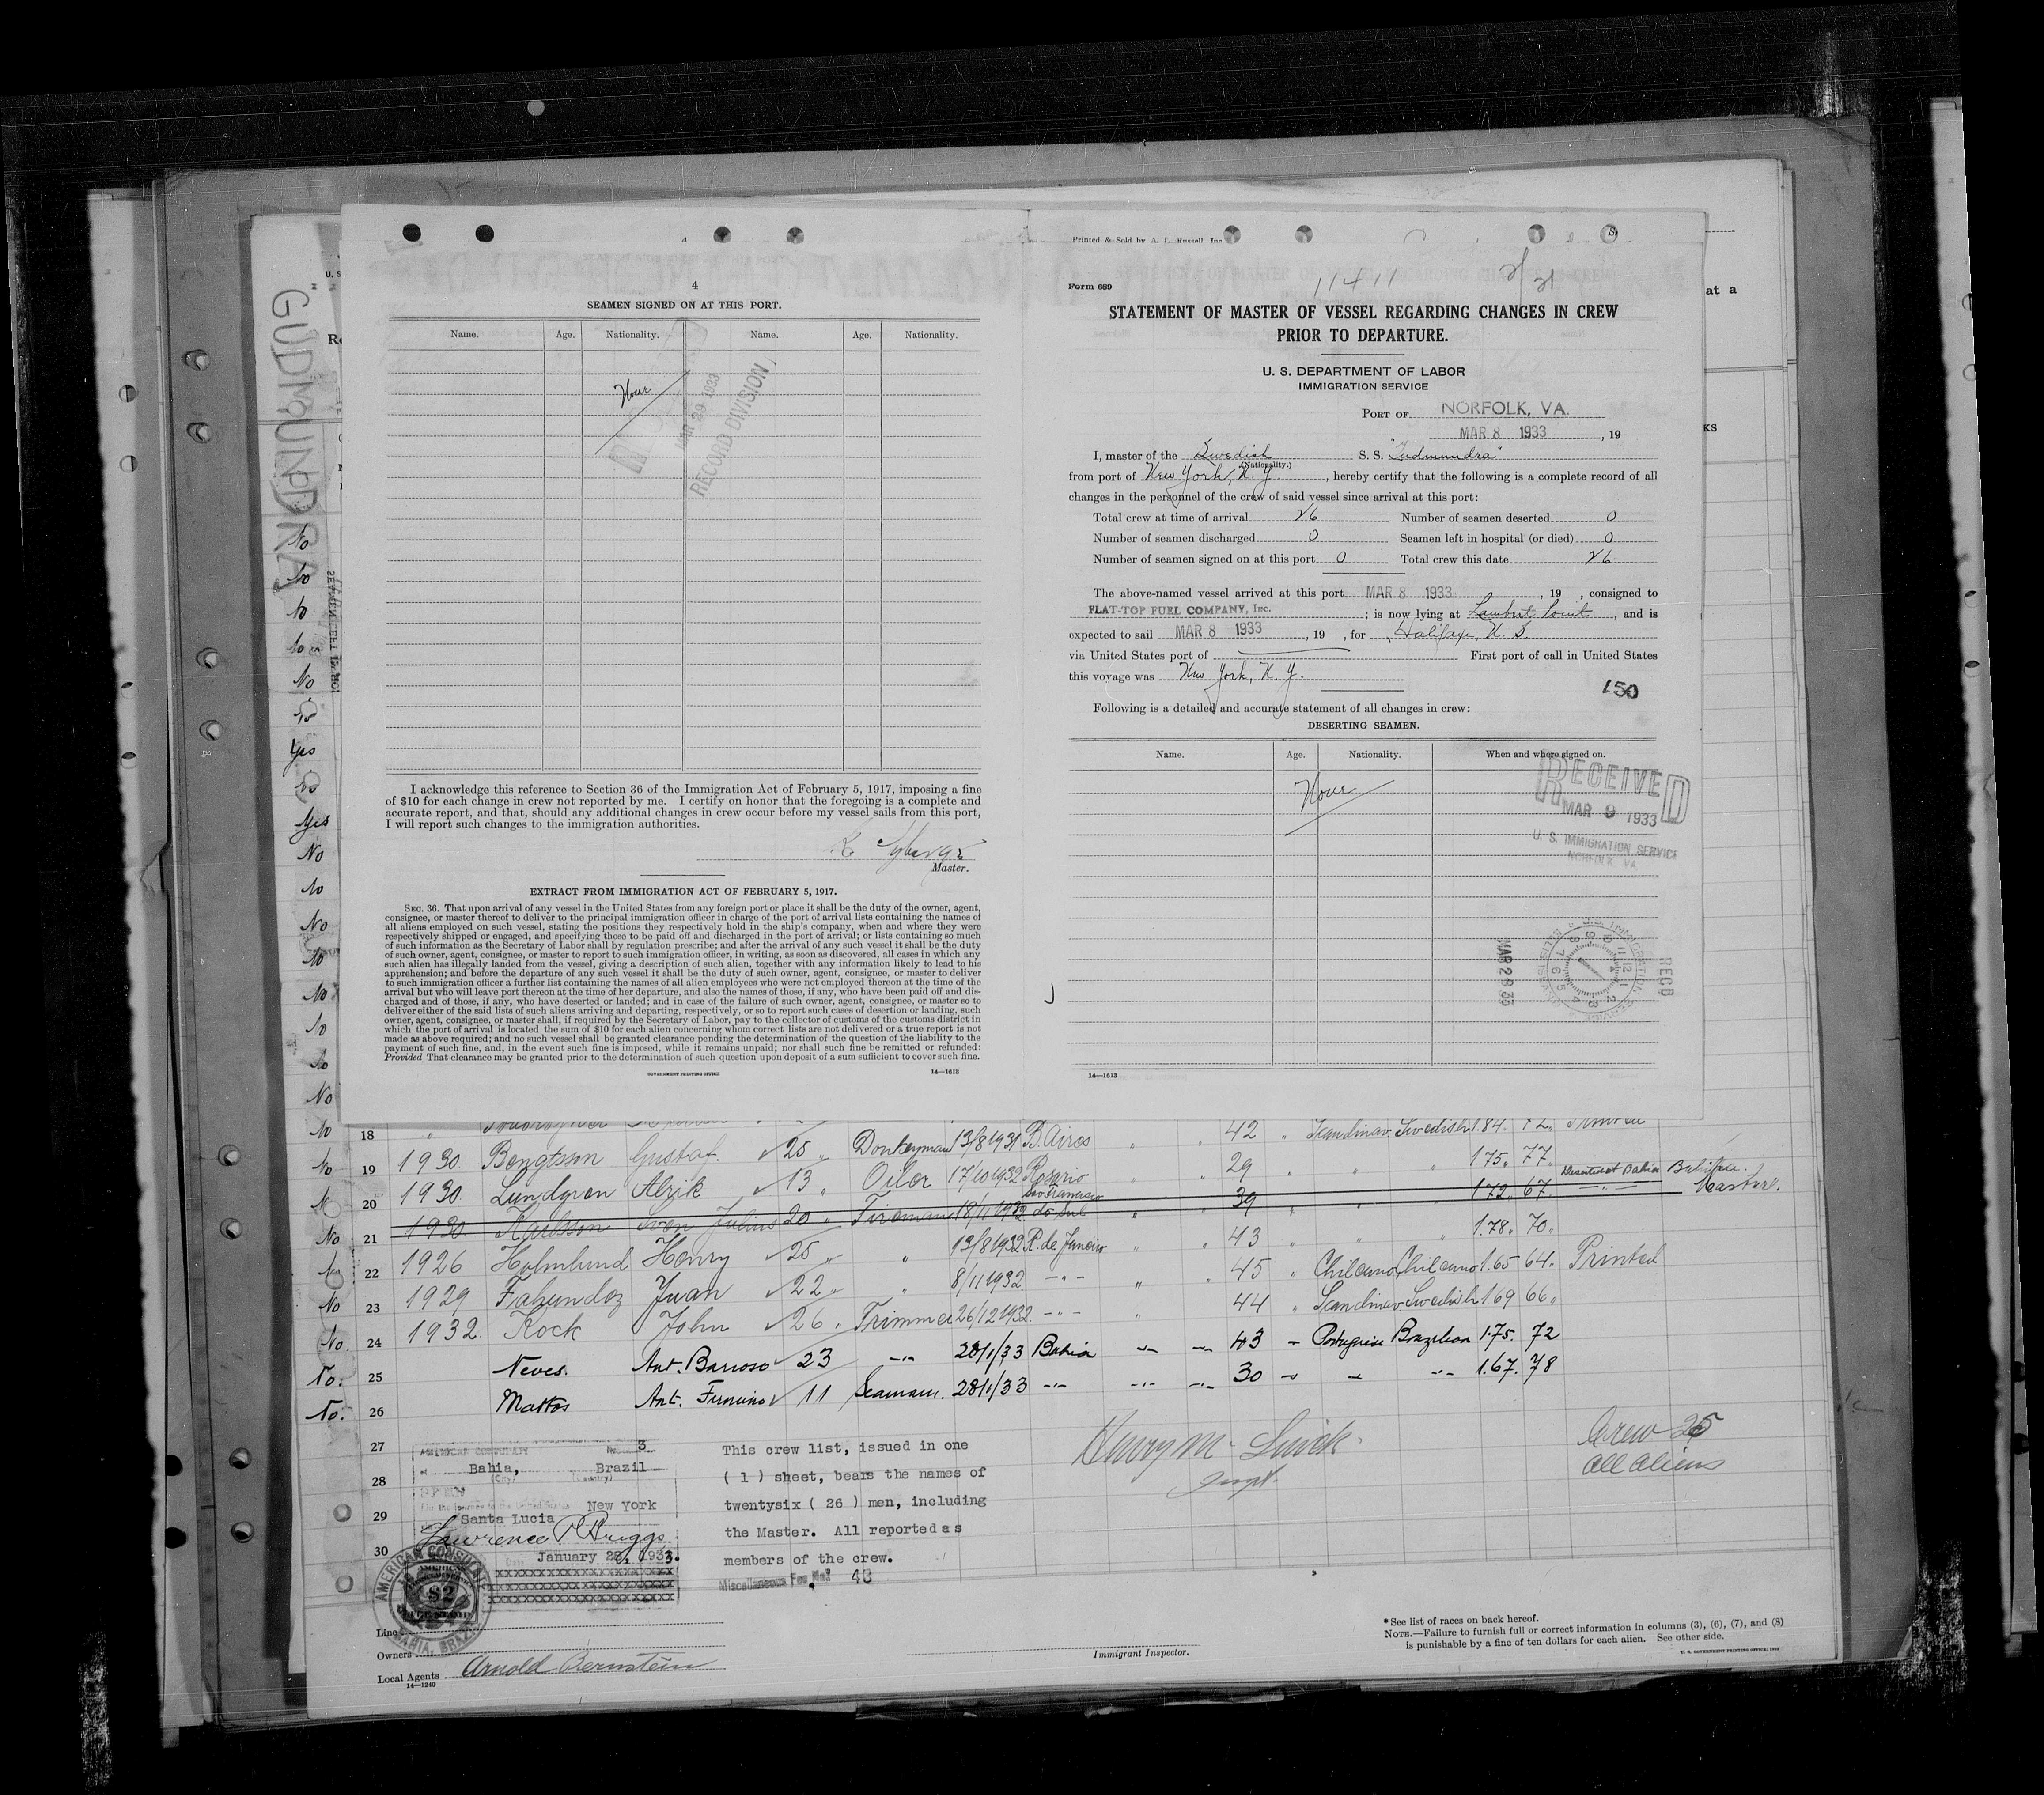 GUDMUNDRA
4
SEAMEN SIGNED ON AT THIS PORT.
Name. Age. Nationality. Name. Age. Nationality.
None
MAR 29 1933
RECORD DIVISION
I acknowledge this reference to Section 36 of the Immigration Act of February 5, 1917, imposing a fine
of $10 for each change in crew not reported by me. I certify on honor that the foregoing is a complete and
accurate report, and that, should any additional changes in crew occur before my vessel sails from this port,
I will report such changes to the immigration authorities.
Master.
EXTRACT FROM IMMIGRATION ACT OF FEBRUARY 5, 1917.
SEC. 36. That upon arrival of any vessel in the United States from any foreign port or place it shall be the duty of the owner, agent,
consignee, or master thereof to deliver to the principal immigration officer in charge of the port of arrival lists containing the names of
all aliens employed on such vessel, stating the positions they respectively hold in the ship's company, when and where they were
respectively shipped or engaged, and specifying those to be paid off and discharged in the port of arrival; or lists containing so much
of such information as the Secretary of Labor shall by regulation prescribe; and after the arrival of any such vessel it shall be the duty
of such owner, agent, consignee, or master to report to such immigration officer, in writing, as soon as discovered, all cases in which any
such alien has illegally landed from the vessel, giving a description of such alien, together with any information likely to lead to his
apprehension; and before the departure of any such vessel it shall be the duty of such owner, agent, consignee, or master to deliver
to such immigration officer a further list containing the names of all alien employees who were not employed thereon at the time of the
arrival but who will leave port thereon at the time of her departure, and also the names of those, if any, who have been paid off and dis-
charged and of those, if any, who have deserted or landed; and in case of the failure of such owner, agent, consignee, or master so to
deliver either of the said lists of such aliens arriving and departing, respectively, or so to report such cases of desertion or landing, such
owner, agent, consignee, or master shall, if required by the Secretary of Labor, pay to the collector of customs of the customs district in
which the port of arrival is located the sum of $10 for each alien concerning whom correct lists are not delivered or a true report is not
made as above required; and no such vessel shall be granted clearance pending the determination of the question of the liability to the
payment of such fine, and, in the event such fine is imposed, while it remains unpaid; nor shall such fine be remitted or refunded:
Provided That clearance may be granted prior to the determination of such question upon deposit of a sum sufficient to cover such fine.
GOVERNMENT PRINTING OFFICE 14—1613
Printed & Sold by A. L. Russell, Inc
Form 689
11411
STATEMENT OF MASTER OF VESSEL REGARDING CHANGES IN CREW
PRIOR TO DEPARTURE.
U. S. DEPARTMENT OF LABOR
IMMIGRATION SERVICE
PORT OF NORFOLK, VA.
MAR 8 1933, 19
I, master of the Swedish S. S. "Gudmundra"
(Nationality.)
from port of New York, N. Y., hereby certify that the following is a complete record of all
changes in the personnel of the crew of said vessel since arrival at this port:
Total crew at time of arrival 26 Number of seamen deserted 0
Number of seamen discharged 0 Seamen left in hospital (or died) 0
Number of seamen signed on at this port 0 Total crew this date 26
The above-named vessel arrived at this port MAR 8 1933, 19 , consigned to
FLAT-TOP FUEL COMPANY, Inc. ; is now lying at Lambert Point, and is
expected to sail MAR 8 1933, 19 , for Halifax, N. S.
via United States port of First port of call in United States
this voyage was New York, N. Y.
150
Following is a detailed and accurate statement of all changes in crew:
DESERTING SEAMEN.
Name. Age. Nationality. When and where signed on.
None
RECEIVED
MAR 9 1933
U. S. IMMIGRATION SERVICE
NORFOLK VA
MAR 28 33
RECD
14—1613
No 18 42 " Scandinav. Swedish 1.84. 72.
No 19 1930 Bengtsson Gustaf. 25 " Donkeyman 13/8 1931 B. Aires " " 29 " " " 175. 77.
No 20 1930 Lundgren Alrik 13 " Oiler 17/10 1932 Rosario " " 39 " " " 172. 67.
No 21 1930 Karlsson Sven Julius 20 " Fireman 18/11 1932 Sao Francisco do Sul " " 43 " " " 1.78. 70.
22 1926 Holmlund Henry 25 " " 13/8 1932 R. de Janeiro " " 45 " Chileano Chileano 1.65 64. Printed
No 23 1929 Fahundez Juan 22 " " 8/11 1932. —"— " " 44 " Scandinav. Swedish 169 66.
No. 24 1932. Rock John 26. Trimmer 26/12 1932. —"— " 43 — Portuguese Brazilian 1.75. 72
No. 25 Neves. Ant. Barroso 23 —"— 28/1/33 Bahia —"— —"— 30 —"— 1.67. 78
No. 26 Mattos Ant. Firmino 11 Seaman. 28/1/33 —"— —"— —"—
27
28
29
30
AMERICAN CONSULATE No. 3
at Bahia, Brazil
(City) (Country)
New York
Santa Lucia
Lawrence P. Briggs
January 28, 1933.
AMERICAN CONSULATE
$2
BAHIA, BRAZIL
This crew list, issued in one
( 1 ) sheet, bears the names of
twentysix ( 26 ) men, including
the Master. All reported as
members of the crew.
Miscellaneous Fee No. 43
Crew 25
All aliens
Line
Owners
Local Agents Arnold Bernstein
14—1240
Immigrant Inspector.
*See list of races on back hereof.
NOTE.—Failure to furnish full or correct information in columns (3), (6), (7), and (8)
is punishable by a fine of ten dollars for each alien. See other side.